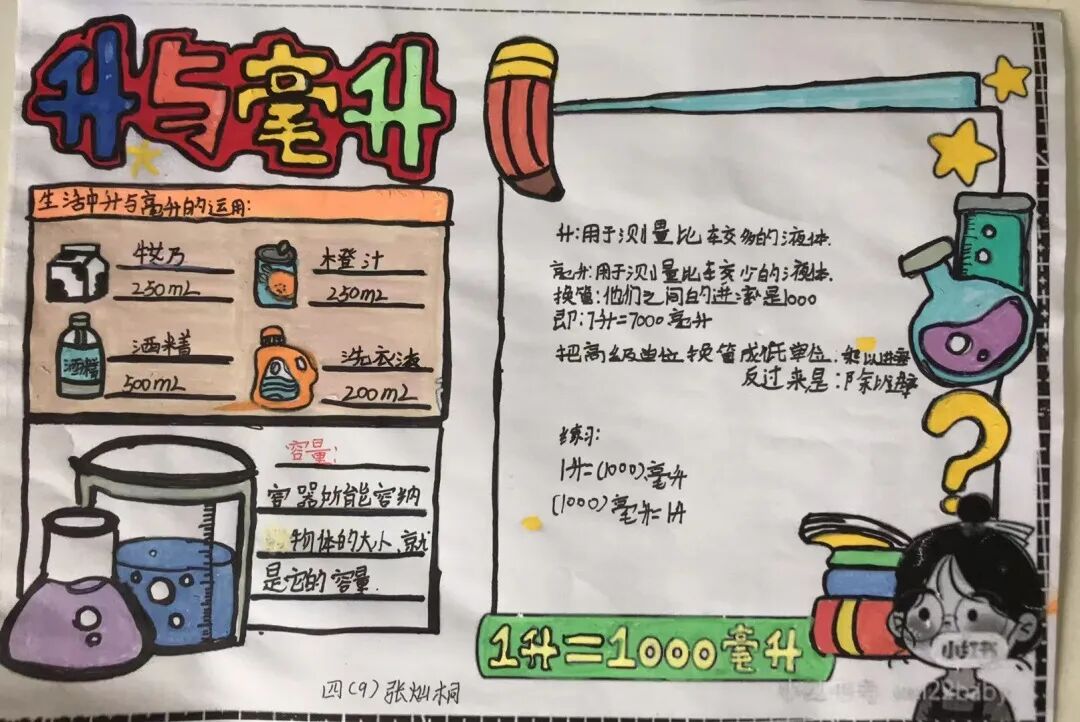 升与毫升
生活中升与毫升的运用:
牛奶
250mL
橙汁
250mL
酒精
500mL
酒精
洗衣液
200mL
容量:
容器所能容纳
物体的大小,就
是它的容量.
升:用于测量比较多的液体.
毫升:用于测量比较少的液体.
换算:他们之间的进率是1000
即:1升=1000毫升
把高级单位换算成低单位.乘以进率
反过来是:除以进率
练习:
1升=(1000)毫升
(1000)毫升=1升
1升=1000毫升
四(9)张灿桐
小红书